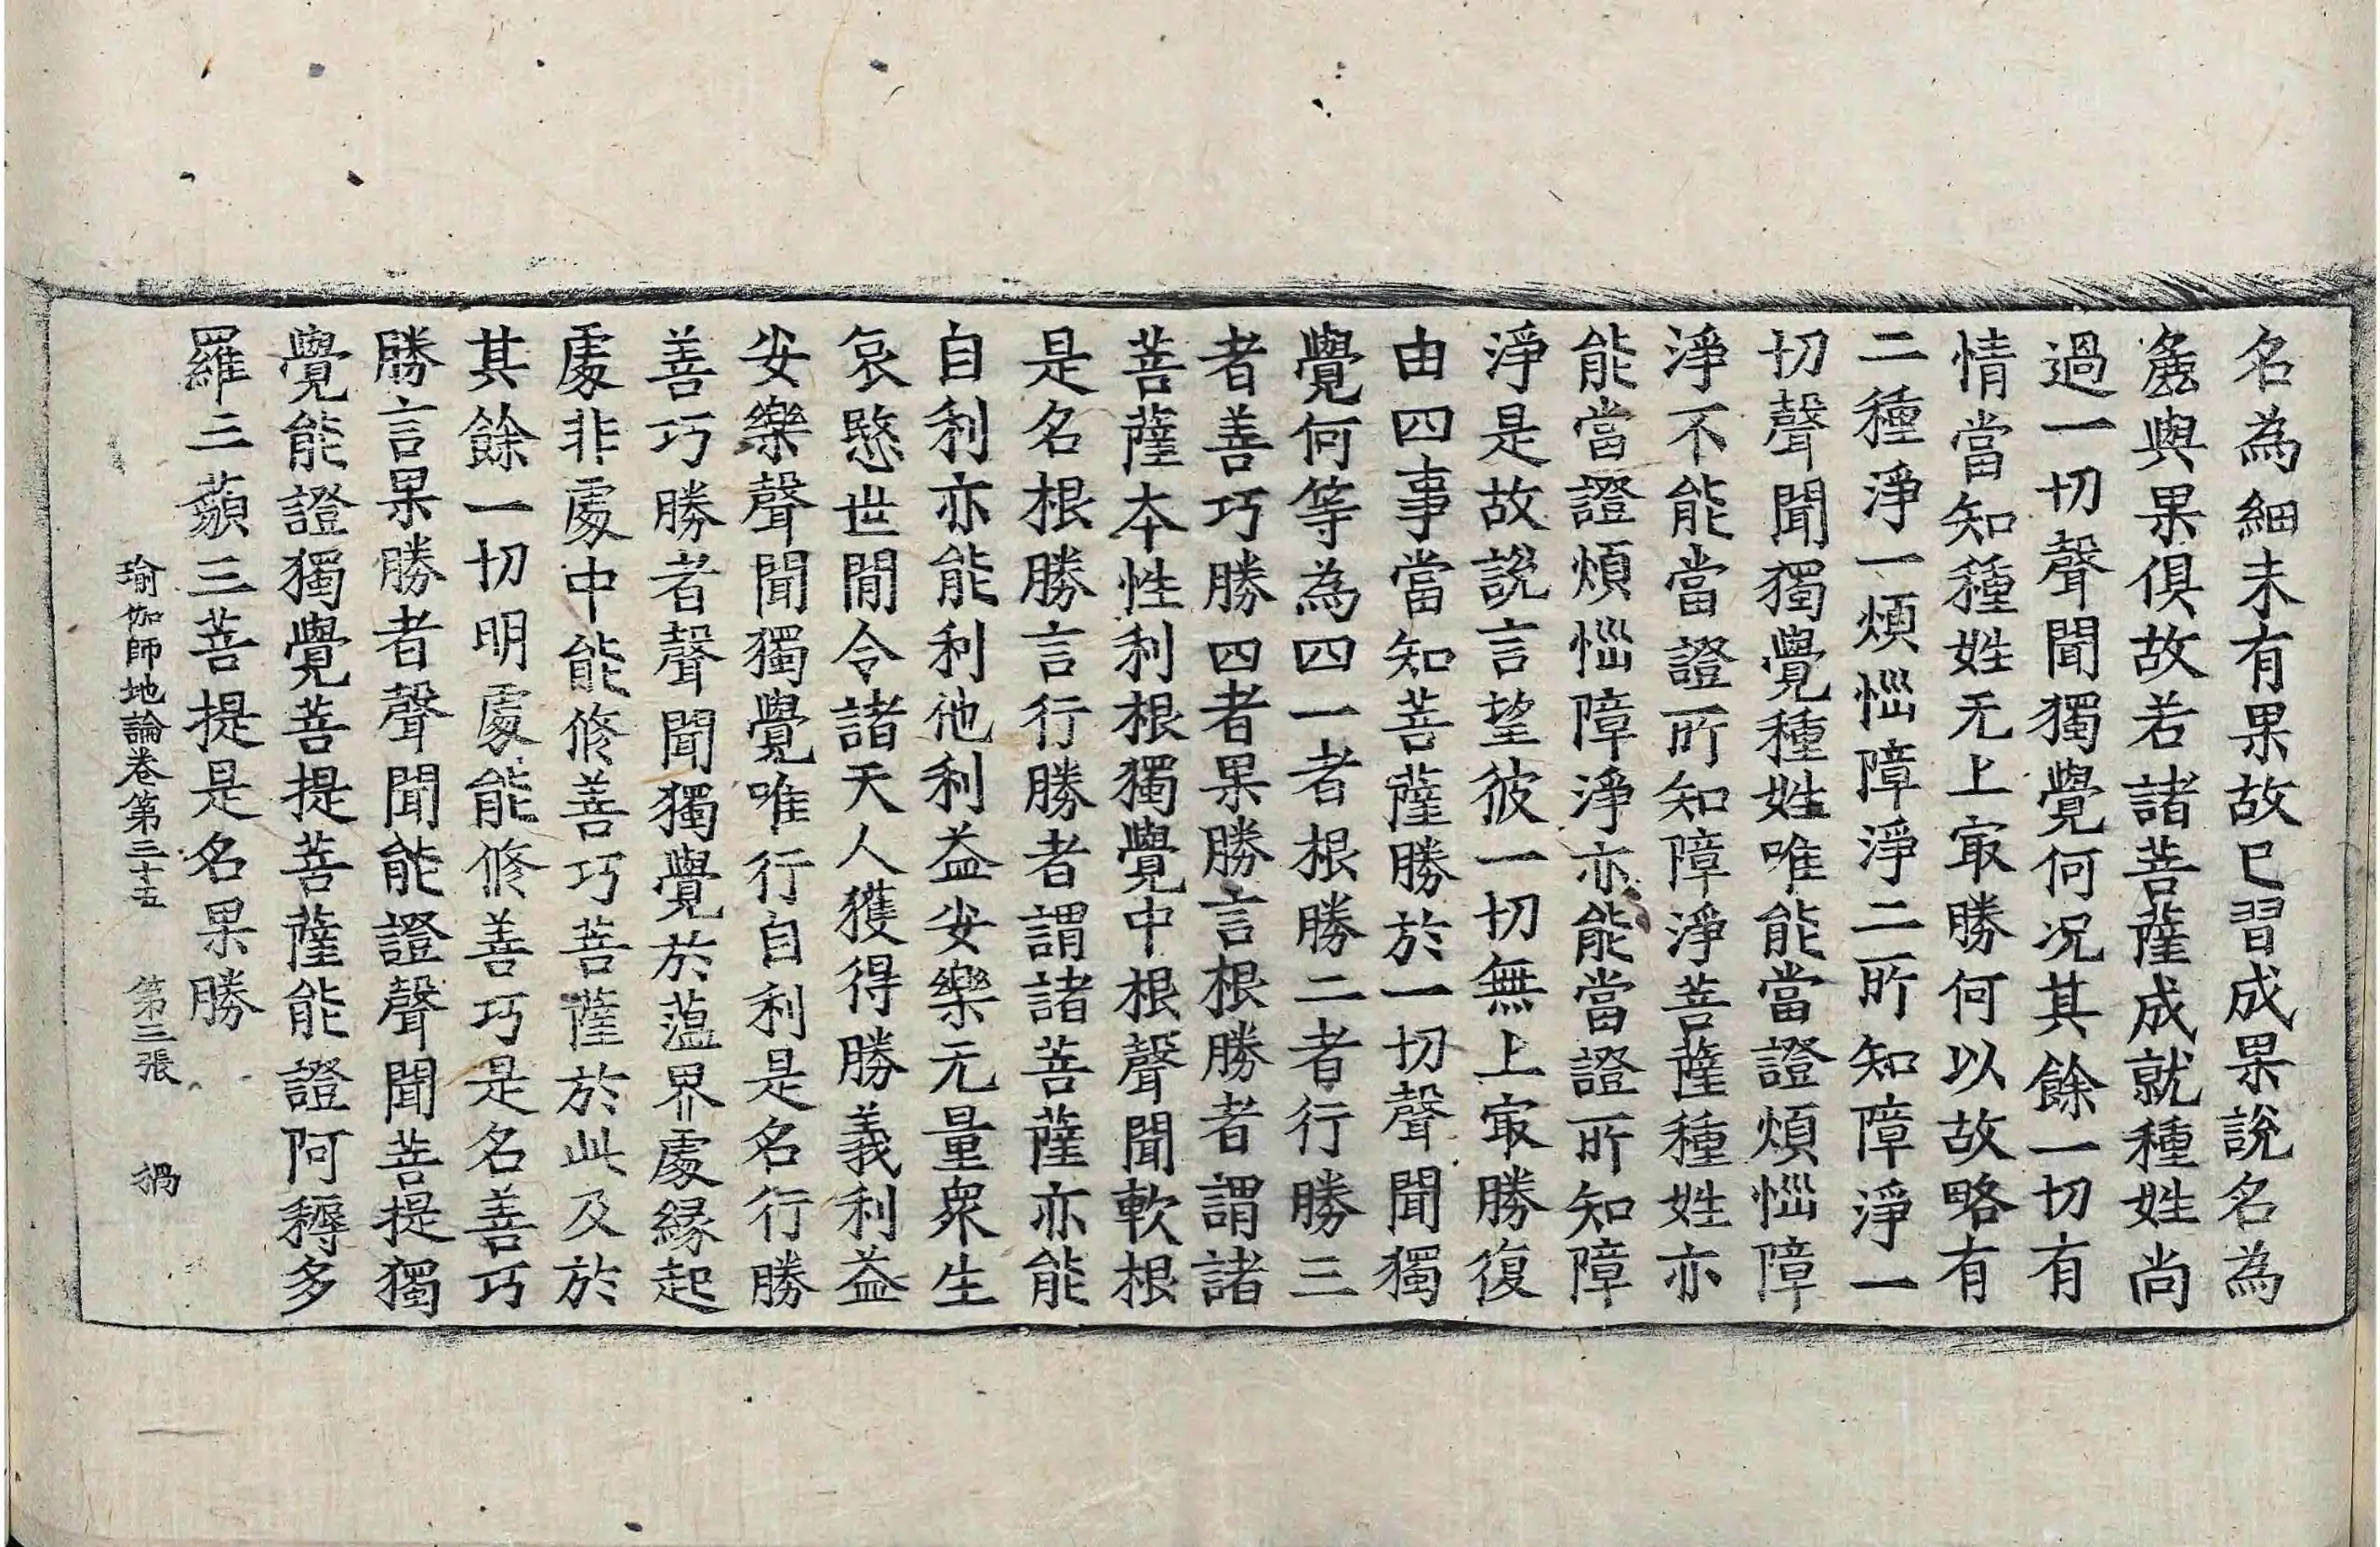 名為細未有果故已習成果說名為
麁與果俱故若諸菩薩成就種姓尚
過一切聲聞獨覺何况其餘一切有
情當知種姓无上㝡勝何以故略有
二種淨一煩惱障淨二所知障淨一
切聲聞獨覺種姓唯能當證煩惱障
淨不能當證所知障淨菩薩種姓亦
能當證煩惱障淨亦能當證所知障
淨是故說言望彼一切無上㝡勝復
由四事當知菩薩勝於一切聲聞獨
覺何等為四一者根勝二者行勝三
者善巧勝四者果勝言根勝者謂諸
菩薩本性利根獨覺中根聲聞軟根
是名根勝言行勝者謂諸菩薩亦能
自利亦能利他利益安樂无量衆生
哀愍世間令諸天人獲得勝義利益
安樂聲聞獨覺唯行自利是名行勝
善巧勝者聲聞獨覺於薀界處緣起
處非處中能修善巧菩薩於此及於
其餘一切明處能修善巧是名善巧
勝言果勝者聲聞能證聲聞菩提獨
覺能證獨覺菩提菩薩能證阿耨多
羅三藐三菩提是名果勝
瑜伽師地論卷第三十五 第三張 禍